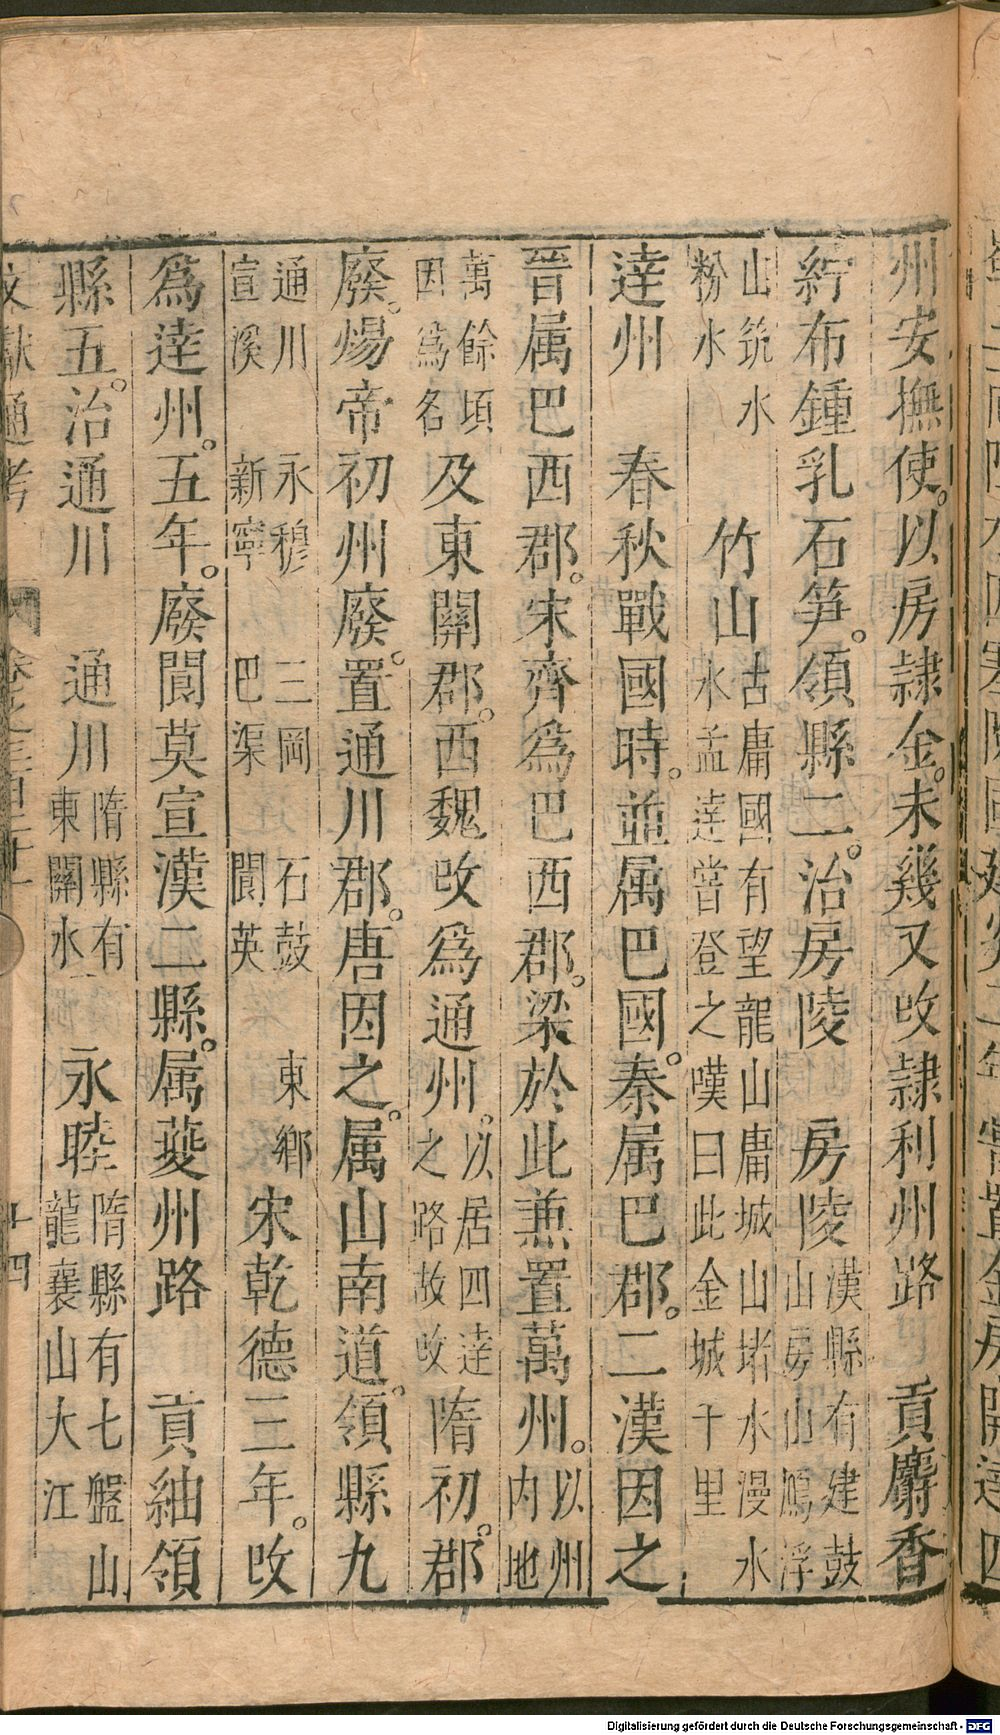 州安撫使。以房隷金。未幾又改隷利州路　貢麝香
紵布鍾乳石笋。領縣二。治房陵　房陵漢縣有建鼓山房山鴈浮
山筑水粉水　竹山古庸國有望龍山庸城山堵水漫水孟達嘗登之嘆曰此金城千里
逹州　春秋戰國時。並属巴國。秦属巴郡。二漢因之
晉属巴西郡。宋齊爲巴西郡。梁於此兼置萬州。以州内地
萬餘頃因爲名及東關郡。西魏改爲通州。以居四逹之路故改隋初。郡
廢。煬帝初州廢。置通川郡。唐因之。属山南道。領縣九
通川　永穆　三岡　石鼓　東鄉宣漢　新寧　巴渠　閬英宋乾德三年。改
爲逹州。五年。廢閬英宣漢二縣。属夔州路　貢紬領
縣五。治通川　通川隋縣有東關水　永睦隋縣有七盤山龍襄山大江
文獻通考　十四
Digitalisierung gefördert durch die Deutsche Forschungsgemeinschaft - DFG